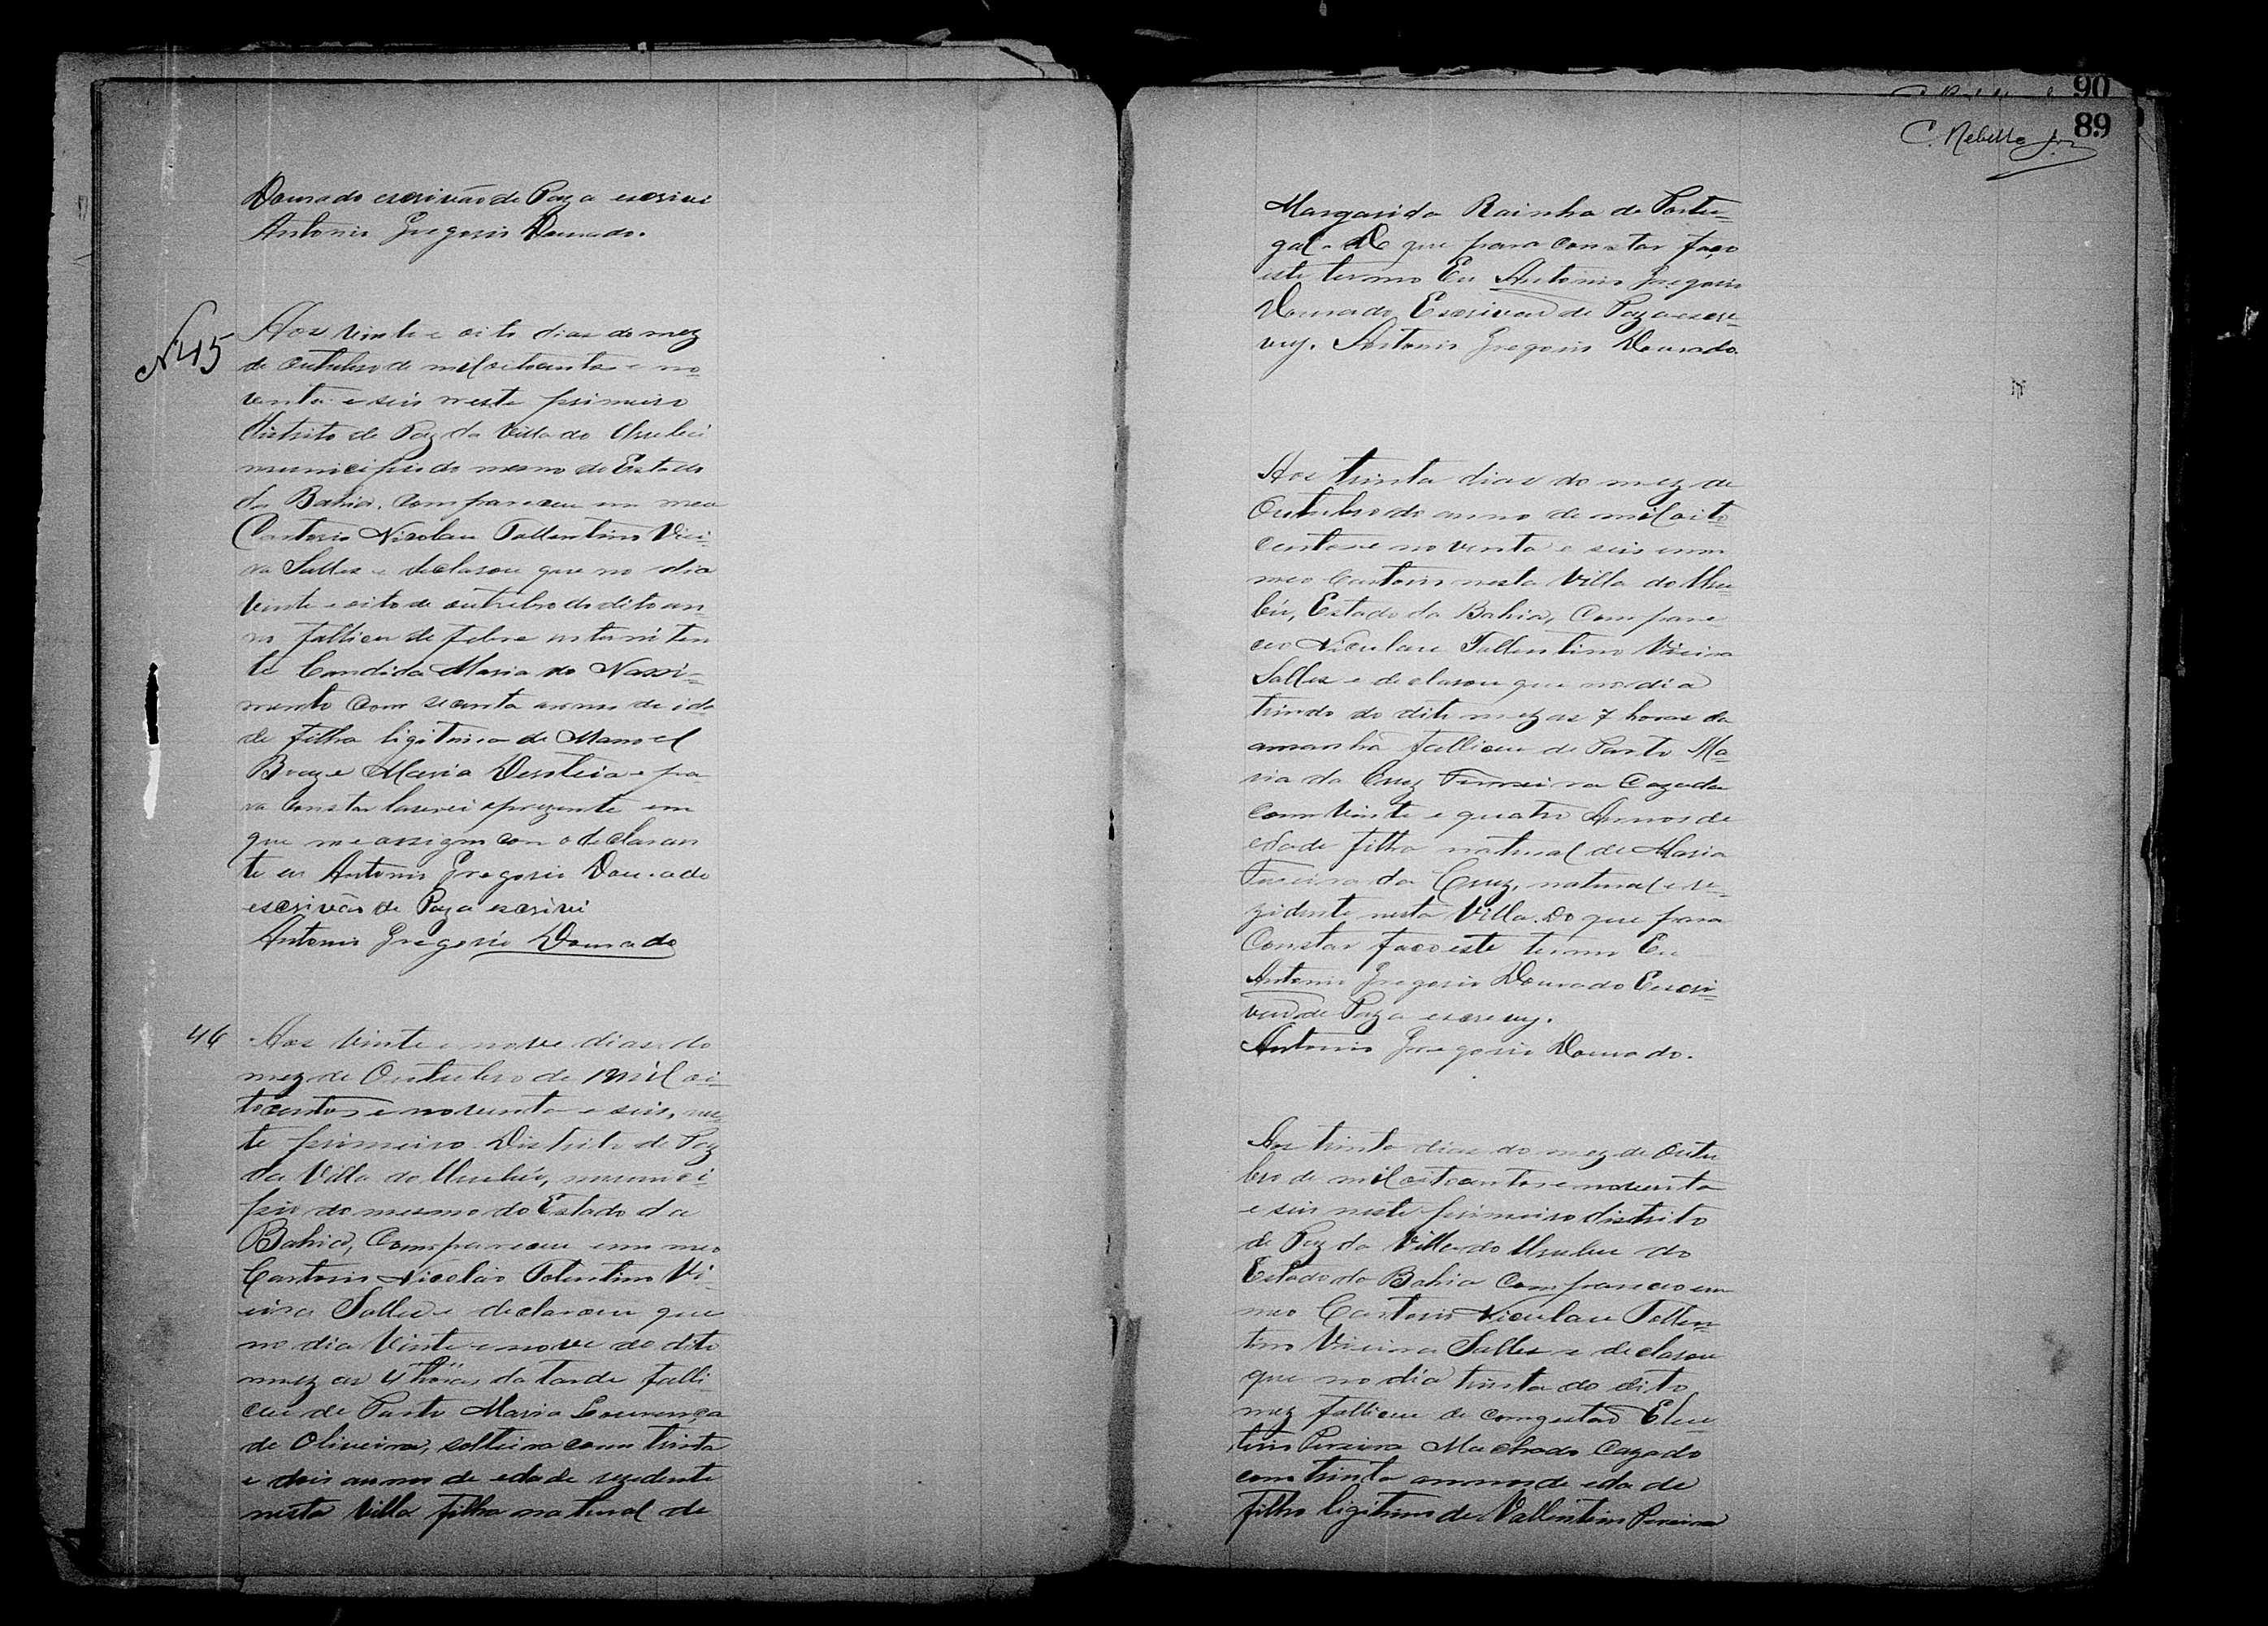 Dourado escrivão de Paz a escrivi
Antonio Gregorio Dourado.
N 45
Aos vinte e oito dias do mez
de Outubro de mil oitocentos e no-
venta e seis neste primeiro
districto de Paz da Villa do Urubú
municipio do mesmo do Estado
da Bahia, compareceu em meu
Cartorio Nicolau Tollentino Viei-
ra Salles e declarou que no dia
vinte e oito de outubro do dito an
no falliceu de febre intermiten
te Candida Maria do Nassi-
mento com secenta annos de ida
de filha ligitima de Manoel
Braz e Maria e pa
ra constar lavrei o prezente em
que me assigno com o declaran
te eu Antonio Gregorio Dourado
escrivão de Paz a escrivi
Antonio Gregorio Dourado
46
Aos vinte e nove dias do
mez de Outubro de mil oi-
tocentos e noventa e seis, nes-
te primeiro Districto de Paz
da Villa do Urubú, munici-
pio do mesmo do Estado da
Bahia, Compareceu em meo
Cartorio Nicoláo Tolentino Vi-
eira Salles e declarou que
no dia vinte e nove do dito
mez as 4 horas da tarde falli-
ceu de Parto Maria Lourença
de Oliveira, solteira com trinta
e dois annos de edade rezidente
nesta Villa filha natural de
90
89
C. Rebello Jor
Margarida Rainha de Portu-
gal. Do que para constar faço
este termo Eu Antonio Gregorio
Dourado Escrivão de Paz a escre-
vy. Antonio Gregorio Dourado.
Aos trinta dias do mez de
Outubro do anno de mil oito
centos e noventa e seis em
meo Cartorio nesta Villa do Uru
bú, Estado da Bahia, Compare
ceo Niculau Tullentino Vieira
Salles e declarou que no dia
trinda do dito mez as 7 horas da
amanhã falliceu de Parto Ma-
ria da Cruz Cazada
com vinte e quatro Annos de
edade filha natural de Maria
da Cruz, natural e re-
zidente nesta Villa. Do que para
Constar faço este termo Eu
Antonio Gregorio Dourado Escri-
vão de Paz a escrevy.
Antonio Gregorio Dourado.
Aos trinta dias do mez de Outu
bro de mil oitocentos e noventa
e seis neste primeiro districto
de Paz da Villa do Urubu do
Estado da Bahia Compareceo em
meo Cartorio Niculau Tollen-
tino Vieira Salles e declarou
que no dia trinta do dito
mez falliceu de congestão Eleu
terio Pereira Machado Cazado
com trinta annos de edade
filho ligitimo de Vallentim Pereira